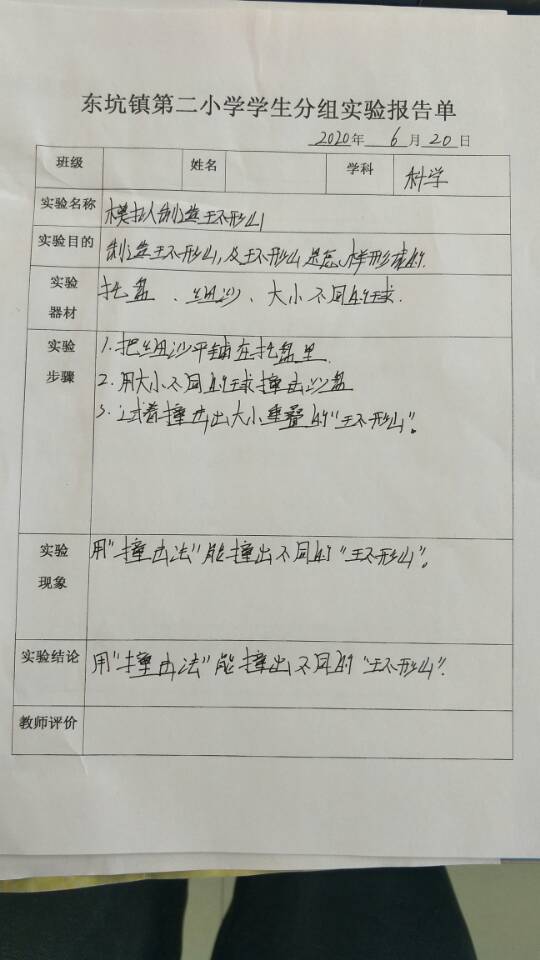 东坑镇第二小学学生分组实验报告单
2020年 6月20日
班级 姓名 学科 科学
实验名称 模拟制造环形山
实验目的 制造环形山,及环形山是怎样形成的.
实验器材 托盘、细沙、大小不同的球.
实验步骤
1.把细沙平铺在托盘里
2.用大小不同的球撞击沙盘
3.试着撞击出大小重叠的“环形山”。
实验现象 用“撞击法”能撞出不同的“环形山”。
实验结论 用“撞击法”能撞出不同的“环形山”.
教师评价